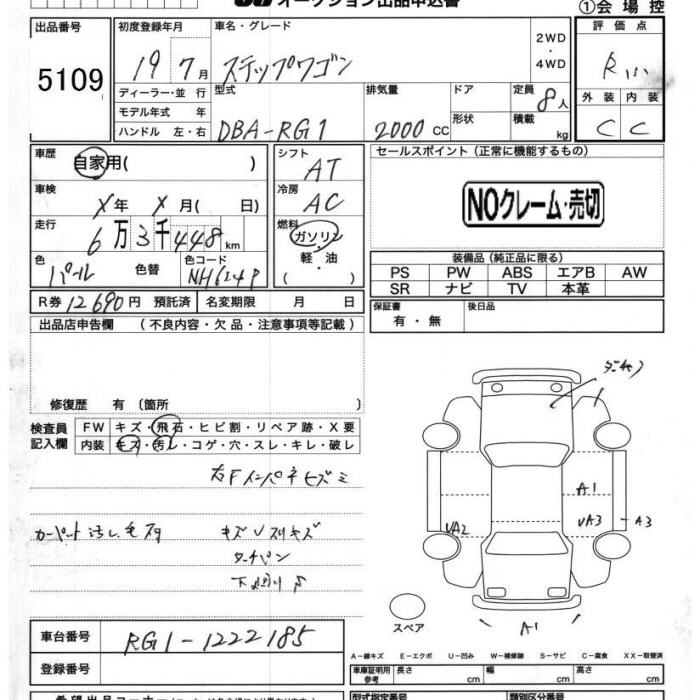 オークション出品申込書
①会場控
出品番号 初度登録年月 車名・グレード 評価点
2WD
・
4WD
5109 19 7月 ステップワゴン R
ディーラー・並行 型式 排気量 ドア 定員 8人 外装 内装
モデル年式 年 形状 積載
ハンドル 左・右 DBA-RG1 2000cc kg C C
車歴 自家用( ) シフト AT セールスポイント(正常に機能するもの)
車検 X年 X月( 日) 冷房 AC NOクレーム・売切
走行 6万3千448km 燃料 ガソリン
軽・油
( )
色 パール 色替 色コード NH624P
装備品(純正品に限る)
PS PW ABS エアB AW
SR ナビ TV 本革
R券 12690円 預託済 名変期限 月 日
保証書 有・無 後日品
出品店申告欄 (不良内容・欠品・注意事項等記載)
修復歴 有(箇所 )
検査員 FW キズ・飛石・ヒビ割・リペア跡・X要
記入欄 内装 キズ・汚レ・コゲ・穴・スレ・キレ・破レ
右Fインパネヒズミ
カーペット汚レ
キズ
A1
UA3 A3
UA2
下
スペア
A1
車台番号 RG1-1222185
登録番号
A-線キズ E-エクボ U-凹み W-補修跡 S-サビ C-腐食 XX-取替済
車庫証明用参考 長さ cm 幅 cm 高さ cm
型式指定番号 類別区分番号